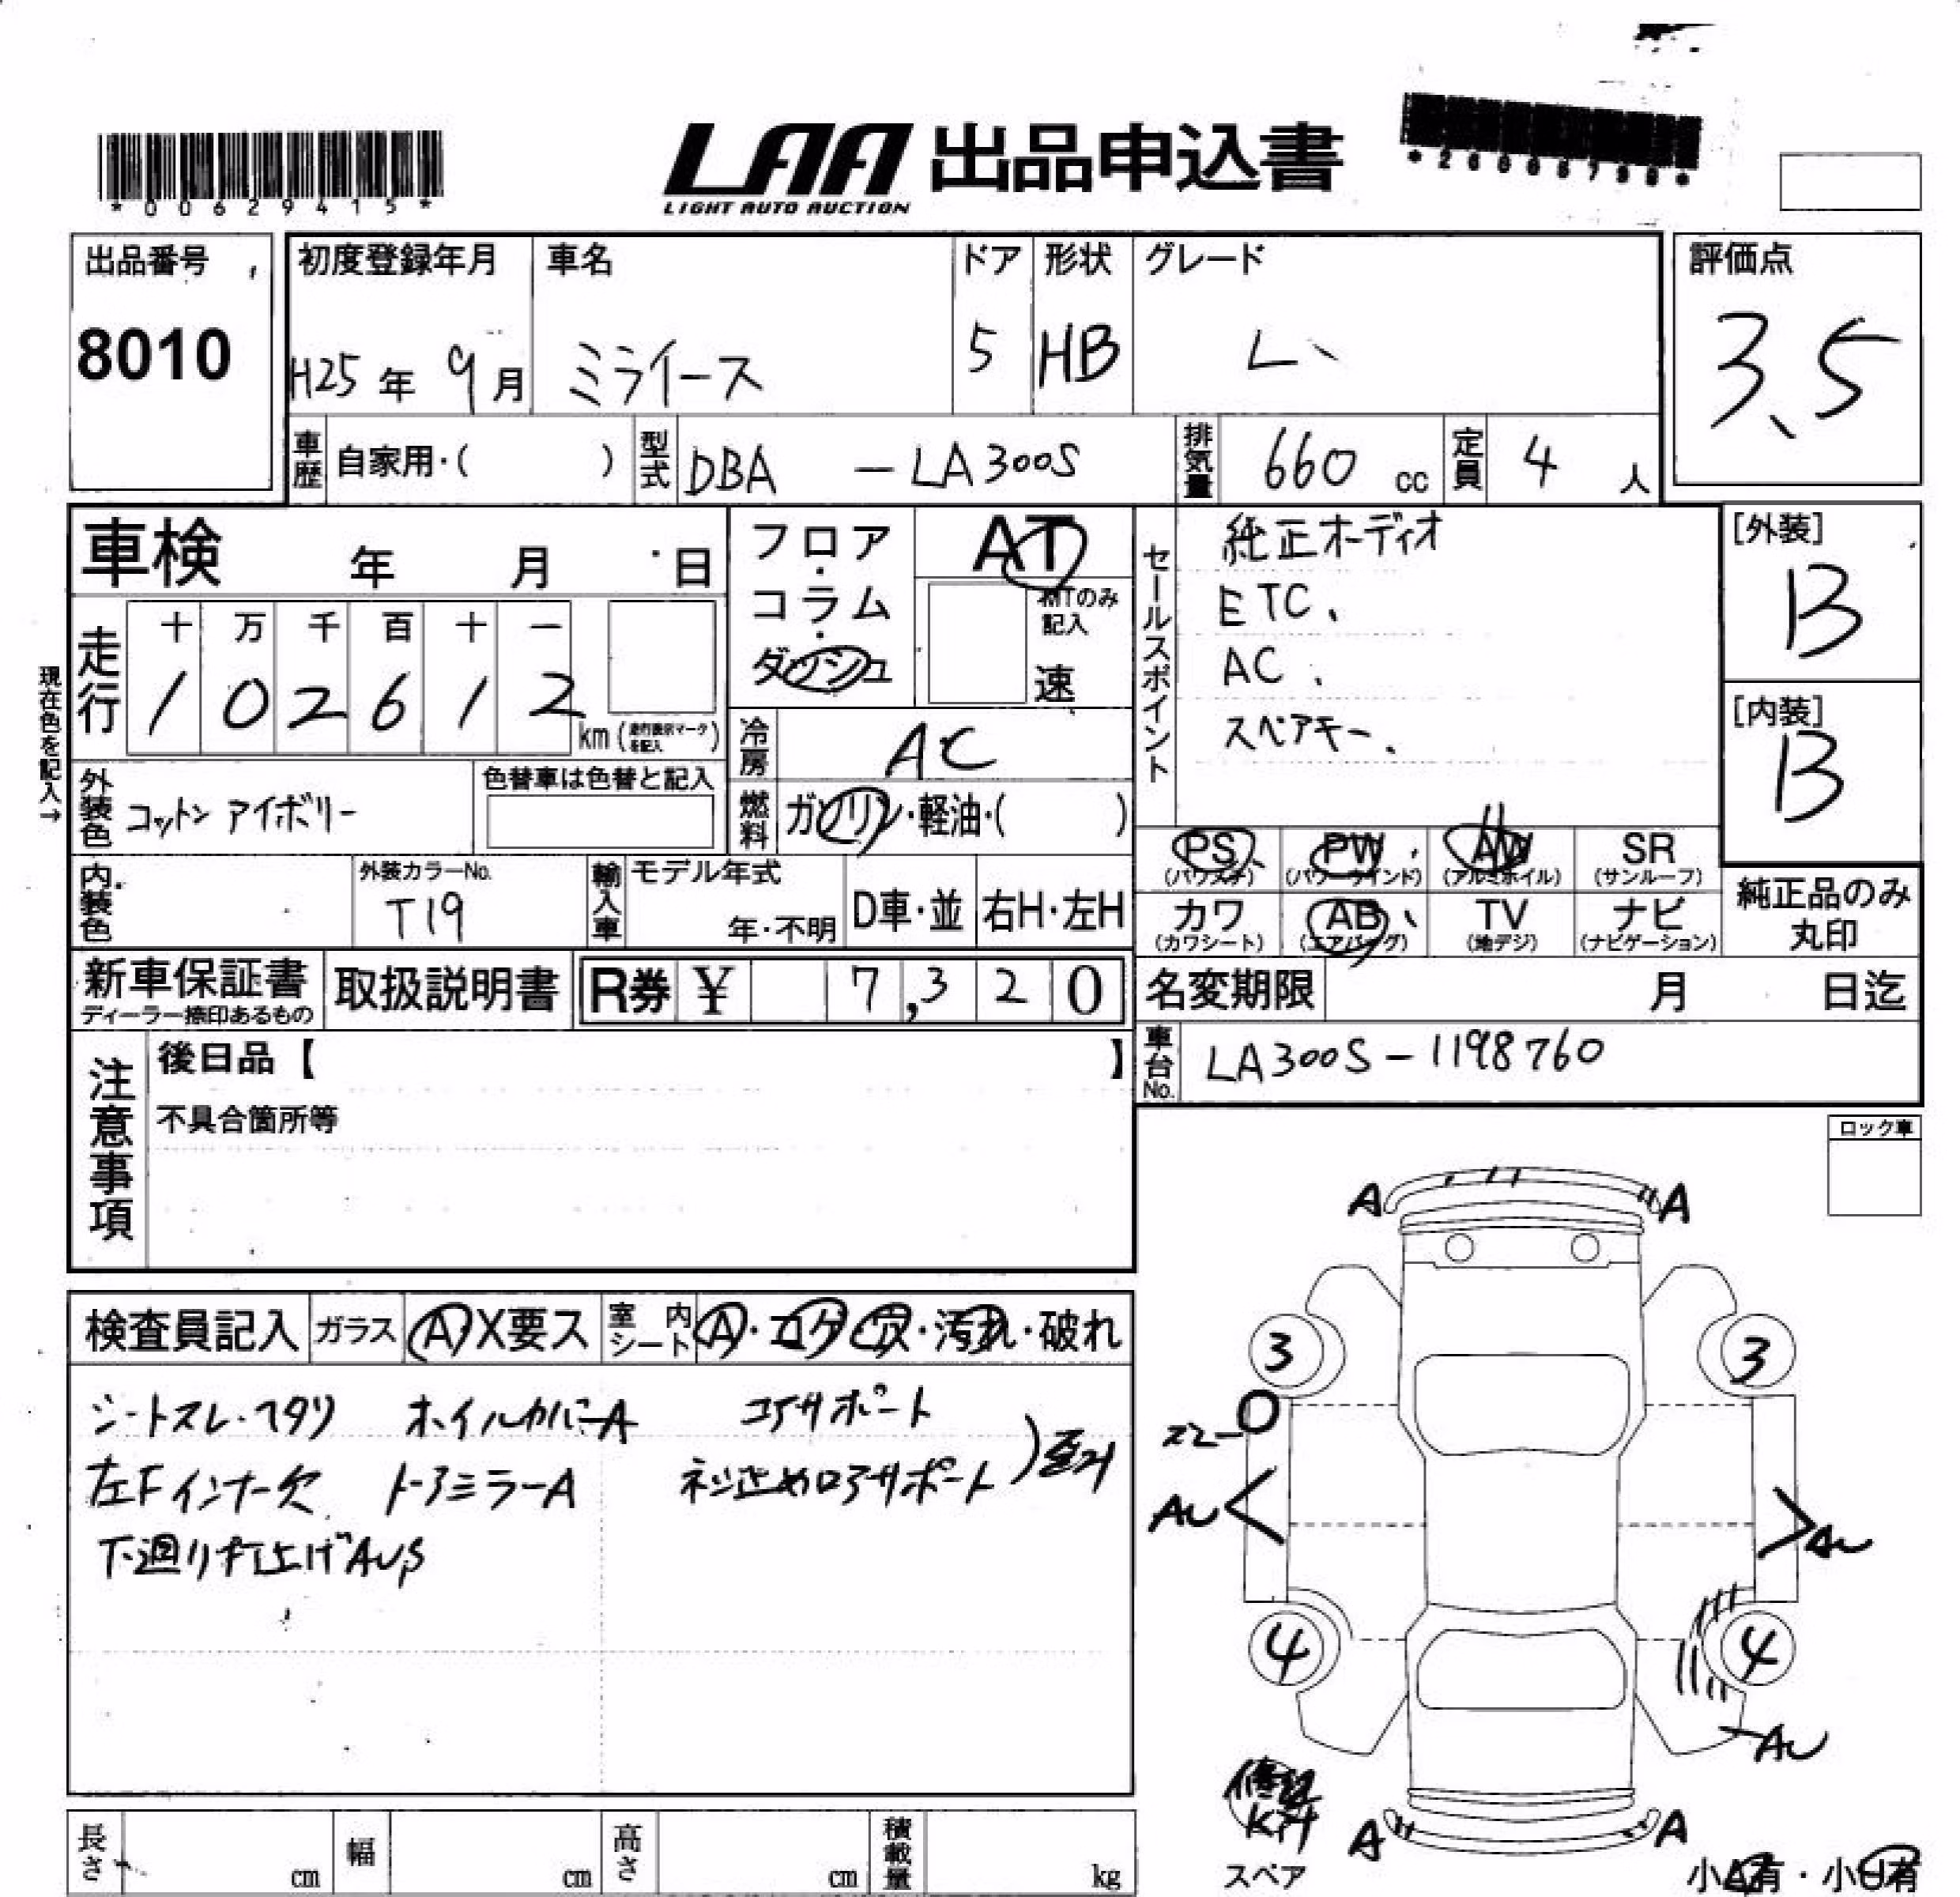 *00629415*
LAA 出品申込書
LIGHT AUTO AUCTION
出品番号
8010
初度登録年月
H25年 9月
車名
ミライース
ドア
5
形状
HB
グレード
L
評価点
3.5
車歴 自家用・( )
型式 DBA - LA300S
排気量 660 cc
定員 4 人
車検 年 月 日
現在色を記入→
走行
十 万 千 百 十 一
1 0 2 6 1 2
km
フロア・コラム・ダッシュ
AT
MTのみ記入
速
冷房 AC
燃料 ガソリン・軽油・( )
セールスポイント
純正オーディオ
ETC、
AC、
スペアキー、
[外装]
B
[内装]
B
外装色 コットンアイボリー
色替車は色替と記入
内装色
外装カラーNo.
T19
輸入車
モデル年式
年・不明
D車・並
右H・左H
PS
(パワステ)
PW
(パワーウインド)
AW
(アルミホイル)
SR
(サンルーフ)
カワ
(カワシート)
AB
(エアバッグ)
TV
(地デジ)
ナビ
(ナビゲーション)
純正品のみ
丸印
新車保証書
ディーラー捺印あるもの
取扱説明書
R券 ¥ 7,320
名変期限 月 日迄
車台No. LA300S-1198760
注意事項
後日品【 】
不具合箇所等
ロック車
検査員記入
ガラス A・X要ス
室内シート A・コゲ・穴・汚れ・破れ
シートスレ・ヘタリ ホイルカバーA コアサポート
左Fインナー欠 ドアミラーA ネジ止めロアサポート
下廻り 突上げ AUS
A A
3 3
AU AU
4 4
AU
A A
スペア
小A有・小U有
長さ cm
幅 cm
高さ cm
積載量 kg